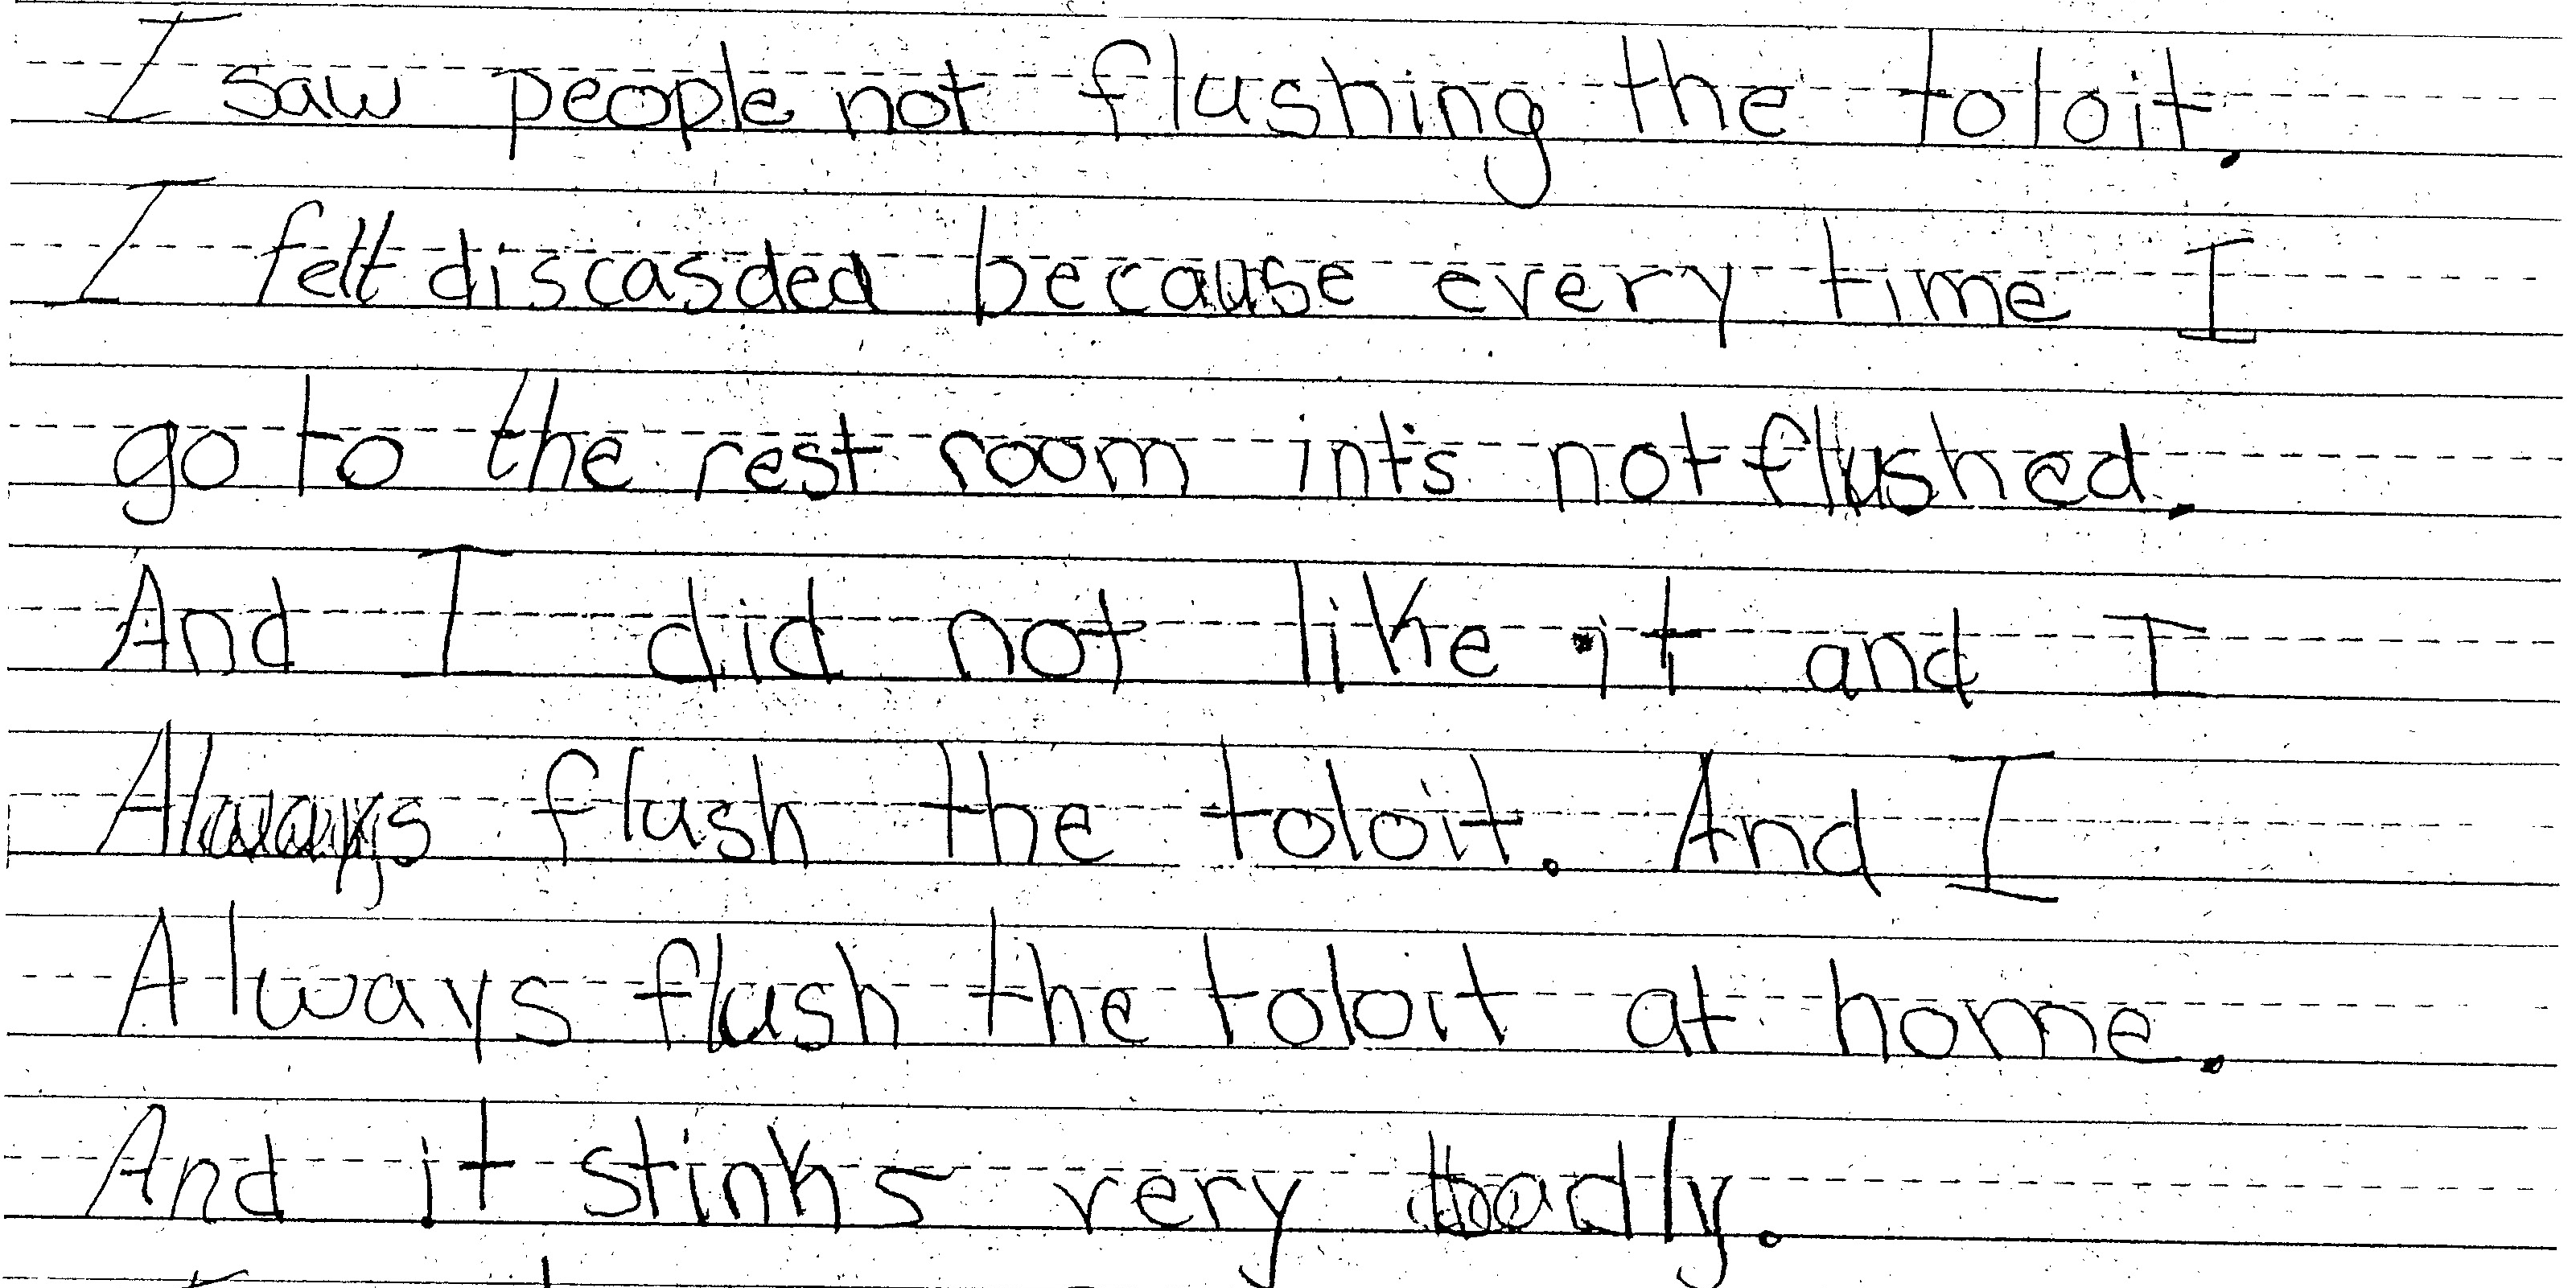 I saw people not flushing the toloit.
I felt discasded because every time I
go to the rest room int's not flushed.
And I did not like it and I
Always flush the toloit. And I
Always flush the toloit at home.
And it stinks very badly.